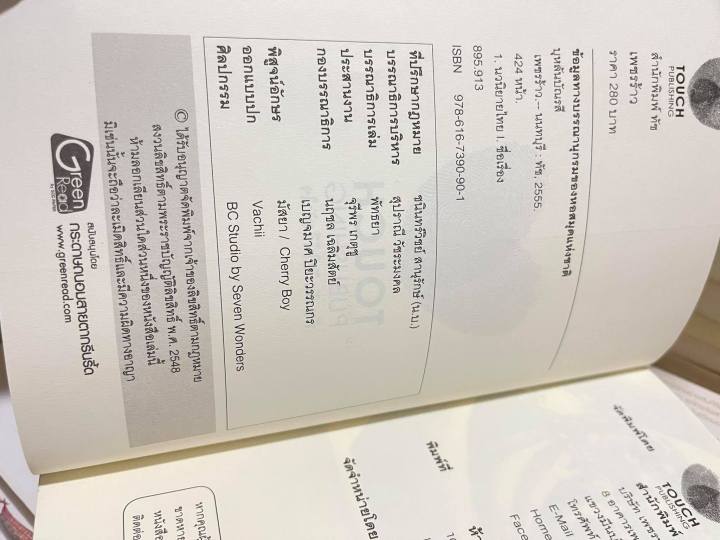 TOUCH
PUBLISHING
สำนักพิมพ์ ทัช
เพชรร้าว
ราคา 280 บาท
ข้อมูลทางบรรณานุกรมของหอสมุดแห่งชาติ
บุหลันบัณรสี
เพชรร้าว.-- นนทบุรี : ทัช, 2555.
424 หน้า.
1. นวนิยายไทย I. ชื่อเรื่อง
895.913
ISBN 978-616-7390-90-1
ที่ปรึกษากฎหมาย ชนินทร์วิชย์ สานุรักษ์ (น.บ.)
บรรณาธิการบริหาร สุปราณี วัชระมงคล
บรรณาธิการเล่ม พัทธยา
ประสานงาน จุรีพร เกตุชู
กองบรรณาธิการ นฤชล เฉลิมสัตย์
เบญจมาศ ปิยะวรรณกร
พิสูจน์อักษร มัสยา / Cherry Boy
ออกแบบปก Vachii
ศิลปกรรม BC Studio by Seven Wonders
© ได้รับอนุญาตจัดพิมพ์จากเจ้าของลิขสิทธิ์ตามกฎหมาย
สงวนลิขสิทธิ์ตามพระราชบัญญัติลิขสิทธิ์ พ.ศ. 2548
ห้ามลอกเลียนส่วนใดส่วนหนึ่งของหนังสือเล่มนี้
มิเช่นนั้นจะถือว่าละเมิดสิทธิ์และมีความผิดทางอาญา
Green
Read
สนับสนุนโดย
กระดาษถนอมสายตากรีนรี้ด
www.greenread.com
TOUCH
PUBLISHING
จัดพิมพ์โดย สำนักพิมพ์
บริษัท เพชร
8 อาคารเพ
แขวงมีนบุ
โทรศัพท์
E-Mail
Home
Face
พิมพ์ที่
จัดจำหน่ายโดย
หากคุณผู้
ขาดหาย
หนังสือ
ติดต่อ